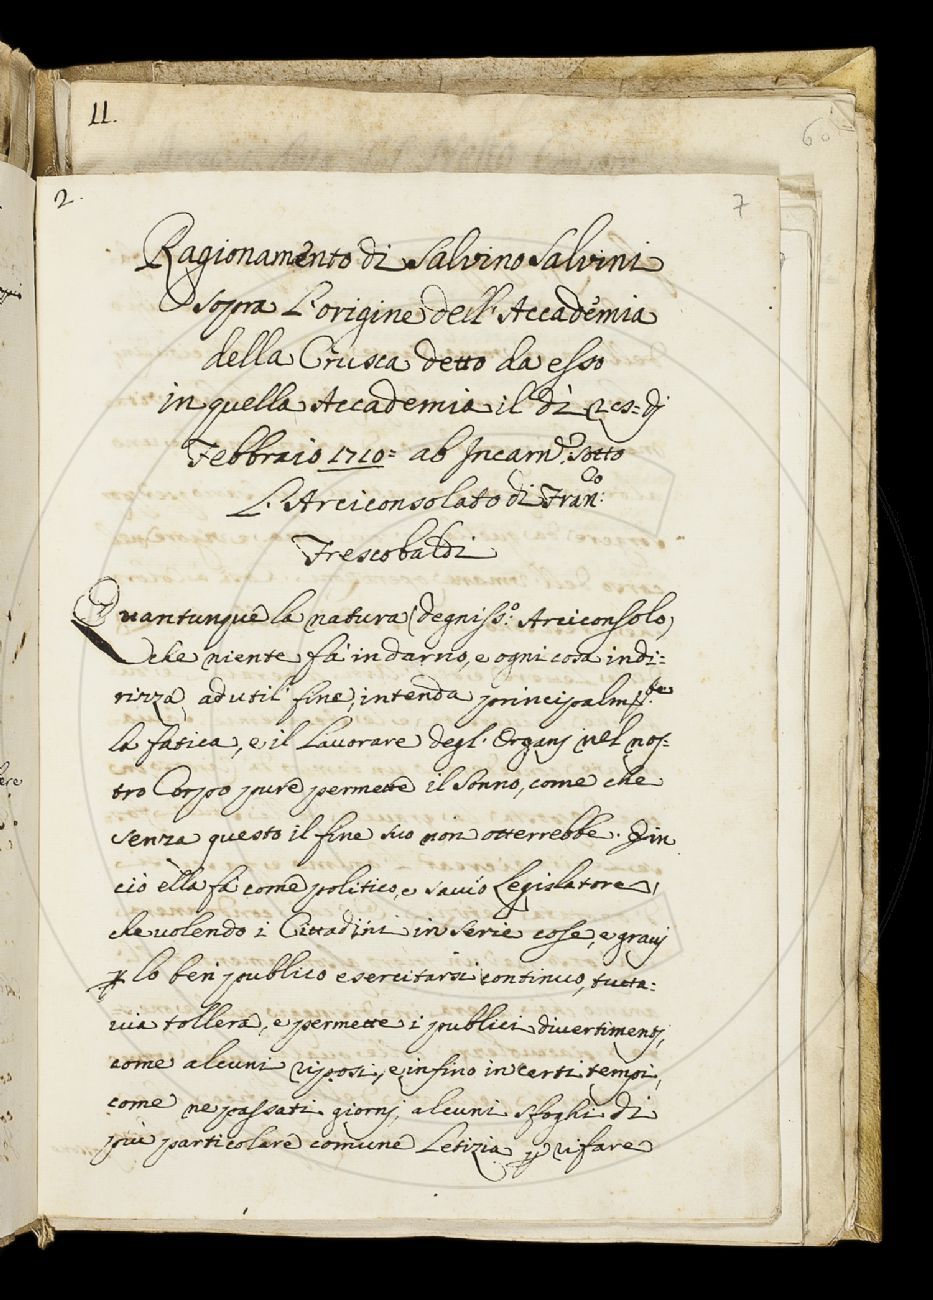 11.
60
2.
7
Ragionamento di Salvino Salvini
sopra L'origine dell'Accademia
della Crusca detto da esso
in quella Accademia il dì
Febbraio 1710= ab Incarn.e sotto
L'Arciconsolato di Fran.co
Frescobaldi
Quantunque la natura (degniss.o Arciconsolo)
che niente fà indarno, e ogni cosa indi=
rizza ad util' fine, intenda principalm.te
la fatica, e il Lavorare degl'Organj nel nos=
tro Corpo pure permette il sonno, come che
senza questo il fine suo non otterrebbe. E in
ciò ella fà come politico, e savio Legislatore,
che volendo i Cittadini in serie cose, e gravj
p lo ben publico esercitarsi continuo, tutta=
via tollera, e permette i publici divertimentj,
come alcuni riposi, e infino in certi tempi,
come ne passati giornj alcuni sfoghi di
più particolare comune Letizia p rifare